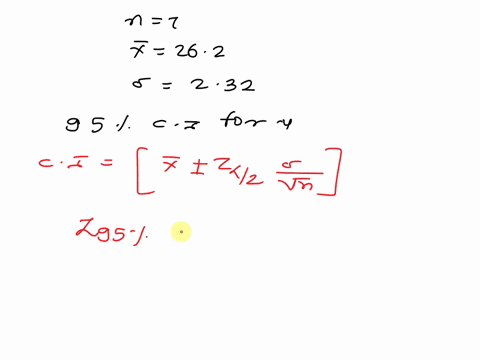 n = 7
x̄ = 26.2
σ = 2.32
95% C.I for μ
C.I = [ x̄ ± Zα/2 σ/√n ]
Z95%